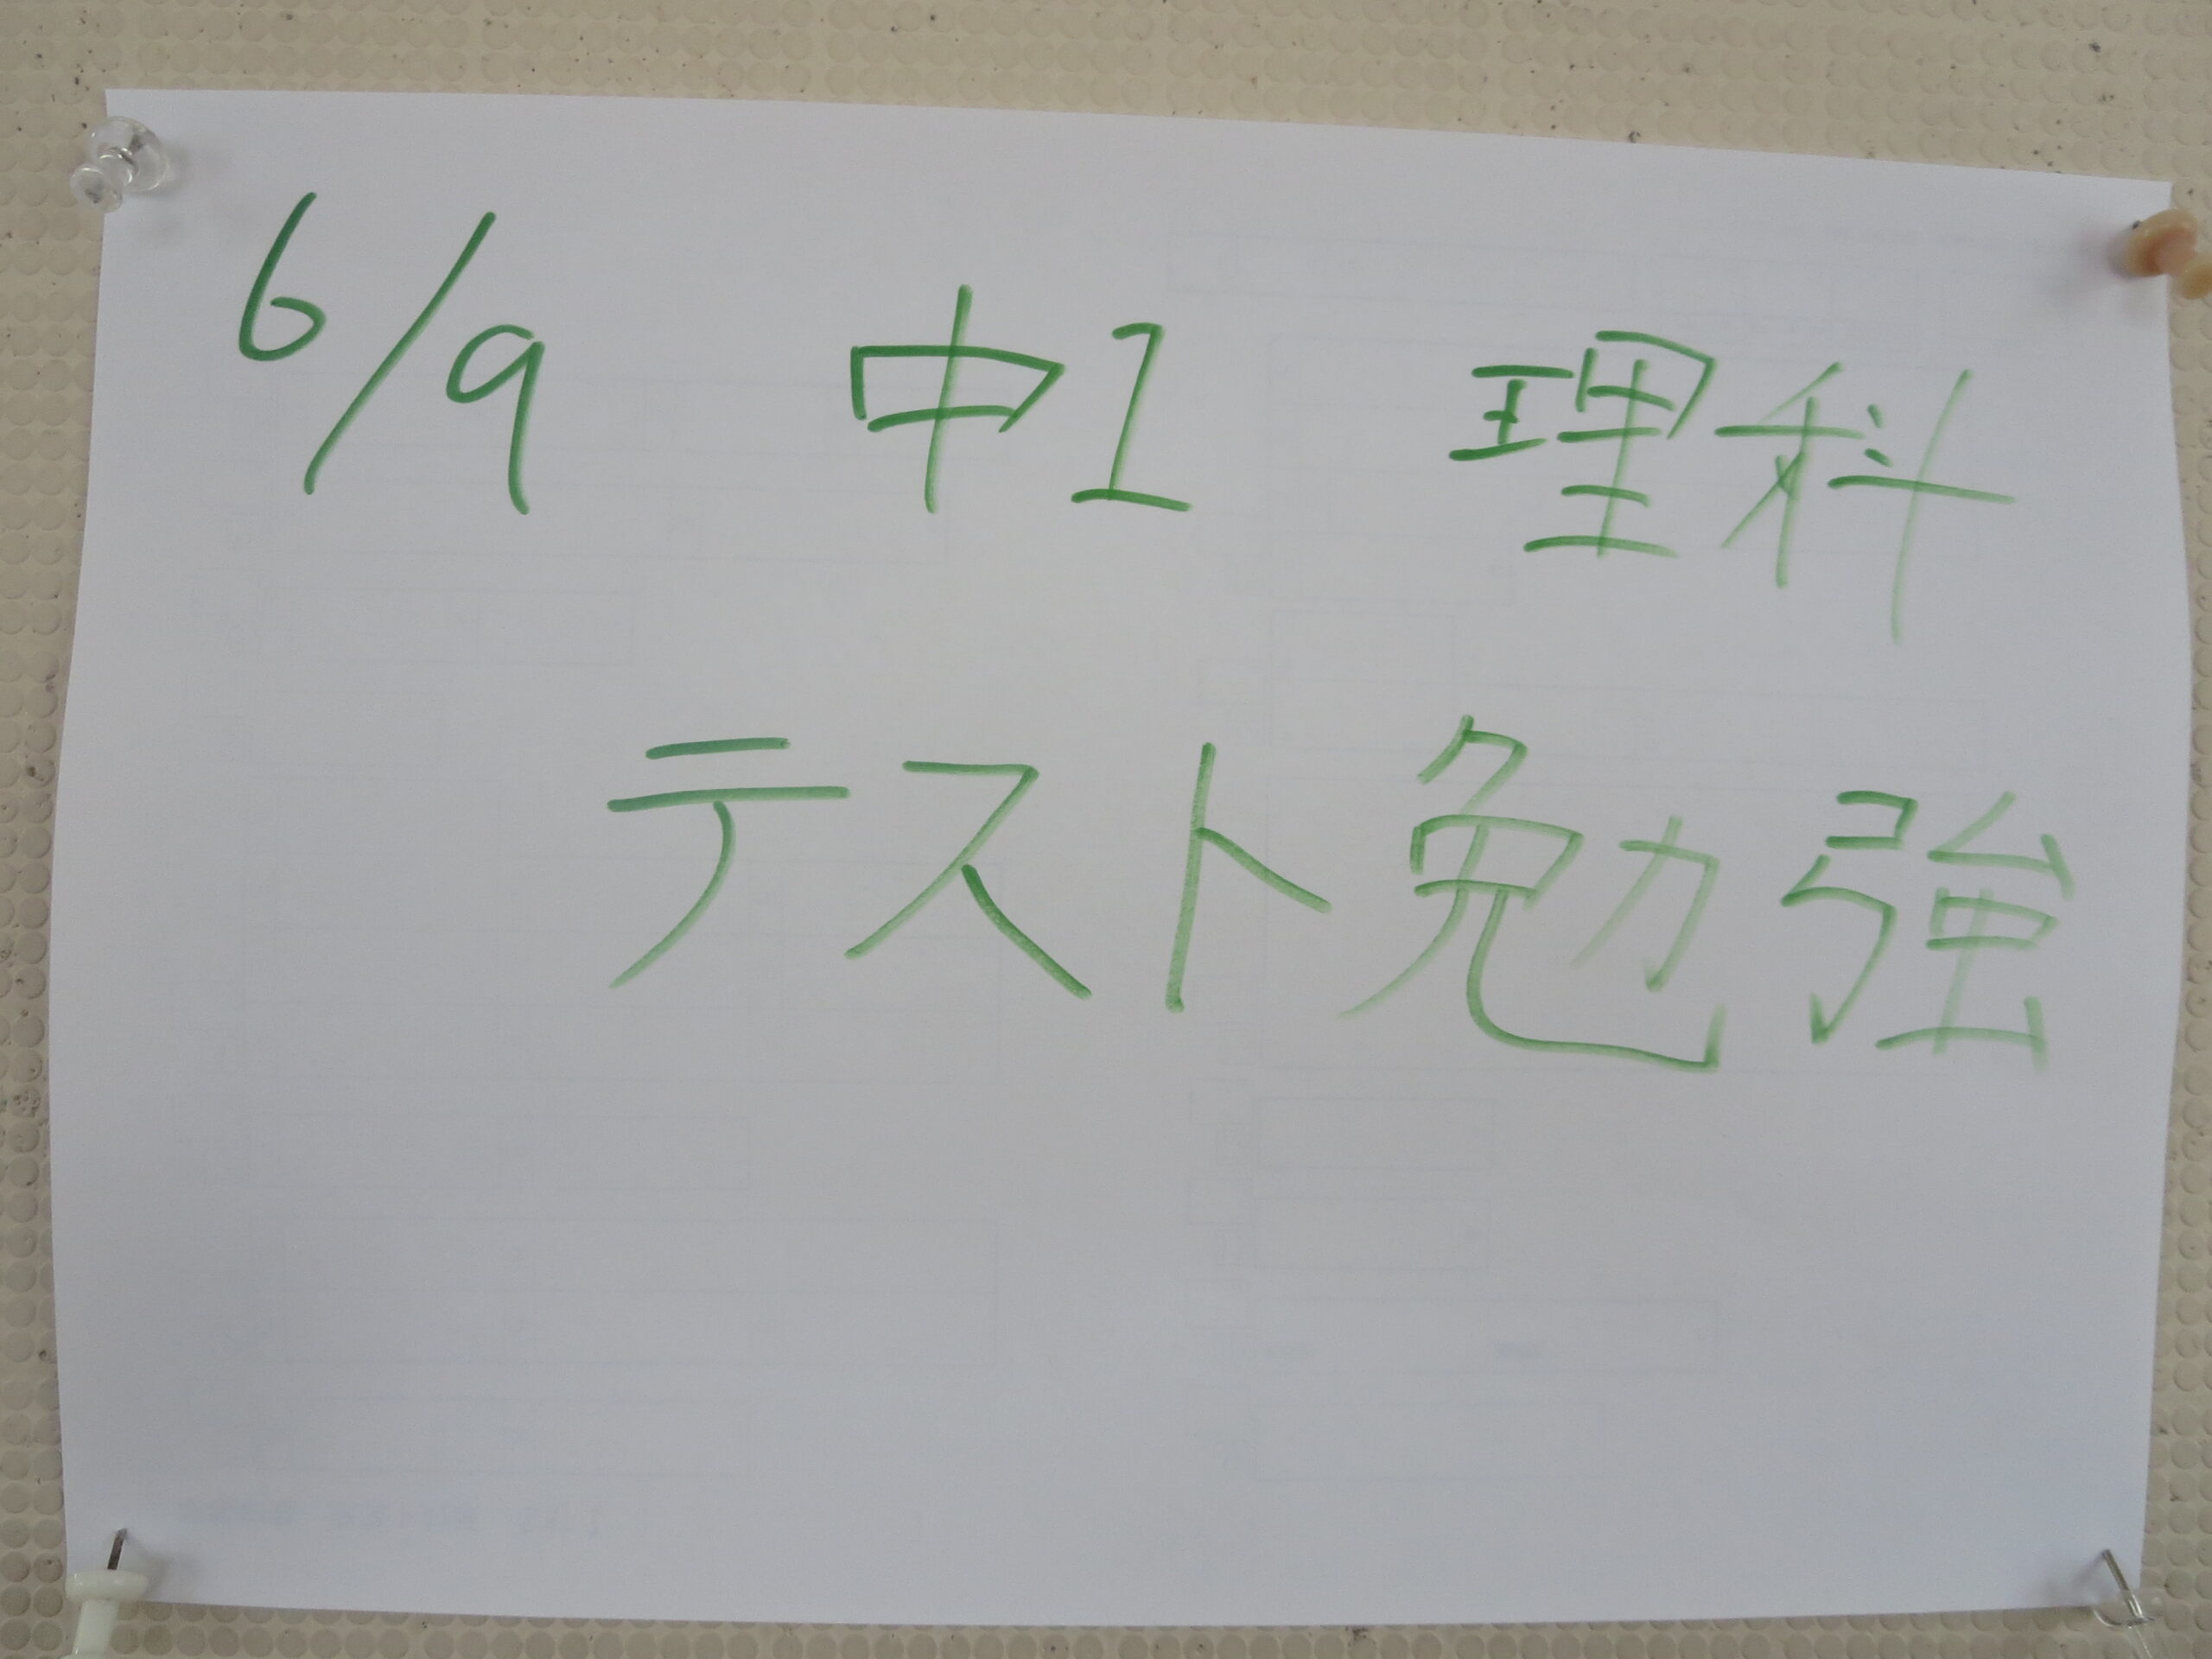 6/9 中1 理科
テスト勉強